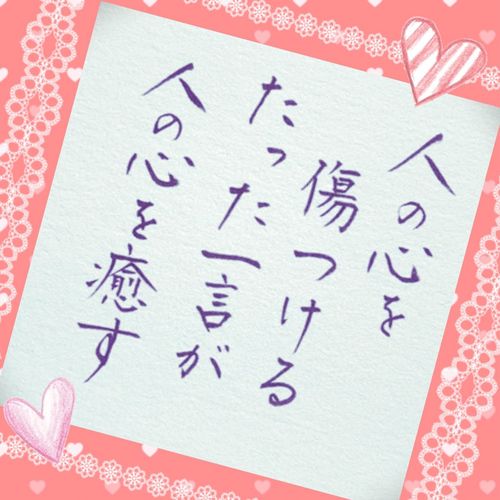 人の心を
傷つける
たった一言が
人の心を癒す